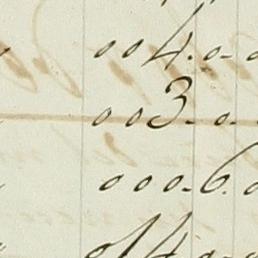 004.0-0
003-0-
000-6.0
014.0-0